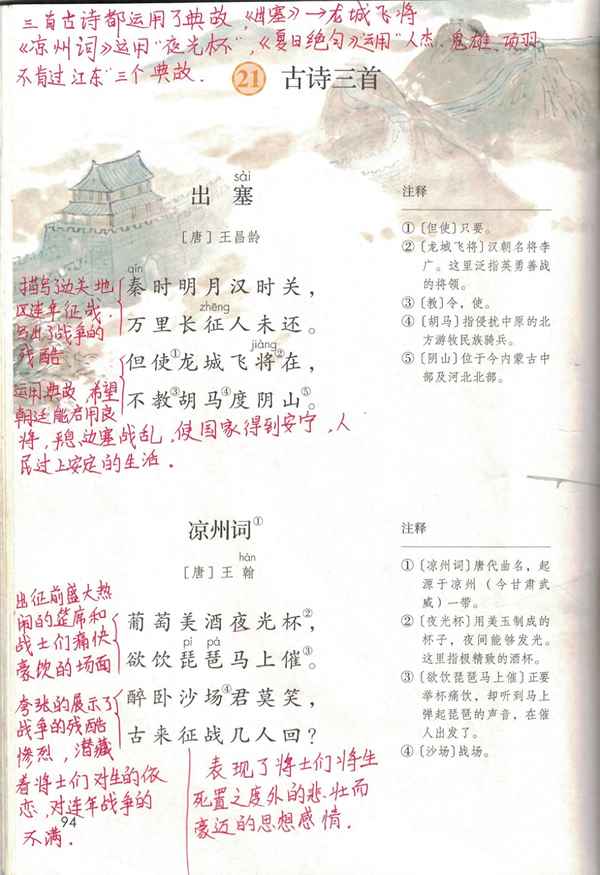 三首古诗都运用了典故，《出塞》→龙城飞将
《凉州词》运用"夜光杯"，《夏日绝句》运用"人杰、鬼雄、项羽
不肯过江东"三个典故．
21 古诗三首
sài
出 塞
[唐] 王昌龄
qín
秦时明月汉时关，
zhēng
万里长征人未还。
jiàng
但使①龙城飞将②在，
不教③胡马④度阴山⑤。
描写了边关地
区连年征战，
写出了战争的
残酷
运用典故，希望
朝廷能启用良
将，平息边塞战乱，使国家得到安宁，人
民过上安定的生活．
注释
①〔但使〕只要。
②〔龙城飞将〕汉朝名将李
广。这里泛指英勇善战
的将领。
③〔教〕令，使。
④〔胡马〕指侵扰中原的北
方游牧民族骑兵。
⑤〔阴山〕位于今内蒙古中
部及河北北部。
凉州词①
hàn
[唐] 王 翰
葡萄美酒夜光杯②，
pí pá
欲饮琵琶马上催③。
醉卧沙场④君莫笑，
古来征战几人回？
出征前盛大热
闹的筵席和
战士们痛快
豪饮的场面
夸张的展示了
战争的残酷
惨烈，潜藏
着将士们对生的依
恋，对连年战争的
不满．
表现了将士们将生
死置之度外的悲壮而
豪迈的思想感情．
注释
①〔凉州词〕唐代曲名，起
源于凉州（今甘肃武
威）一带。
②〔夜光杯〕用美玉制成的
杯子，夜间能够发光。
这里指极精致的酒杯。
③〔欲饮琵琶马上催〕正要
举杯痛饮，却听到马上
弹起琵琶的声音，在催
人出发了。
④〔沙场〕战场。
94